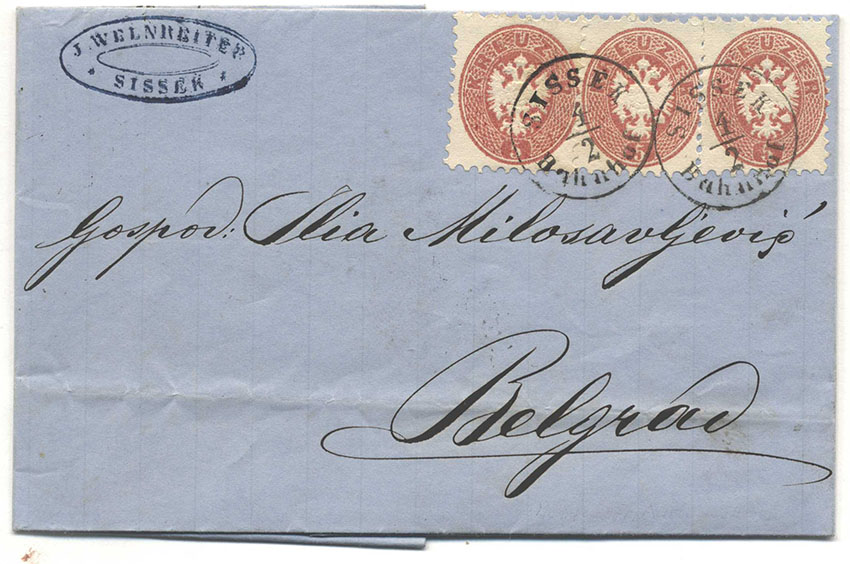 J. WELNREITER
SISSEK
KREUZER
KREUZER
KREUZER
5
5
SISSEK
4/2
Bahnhof
SISSEK
4/2
Bahnhof
Gospod: Ilia Milosavljević
Belgrad